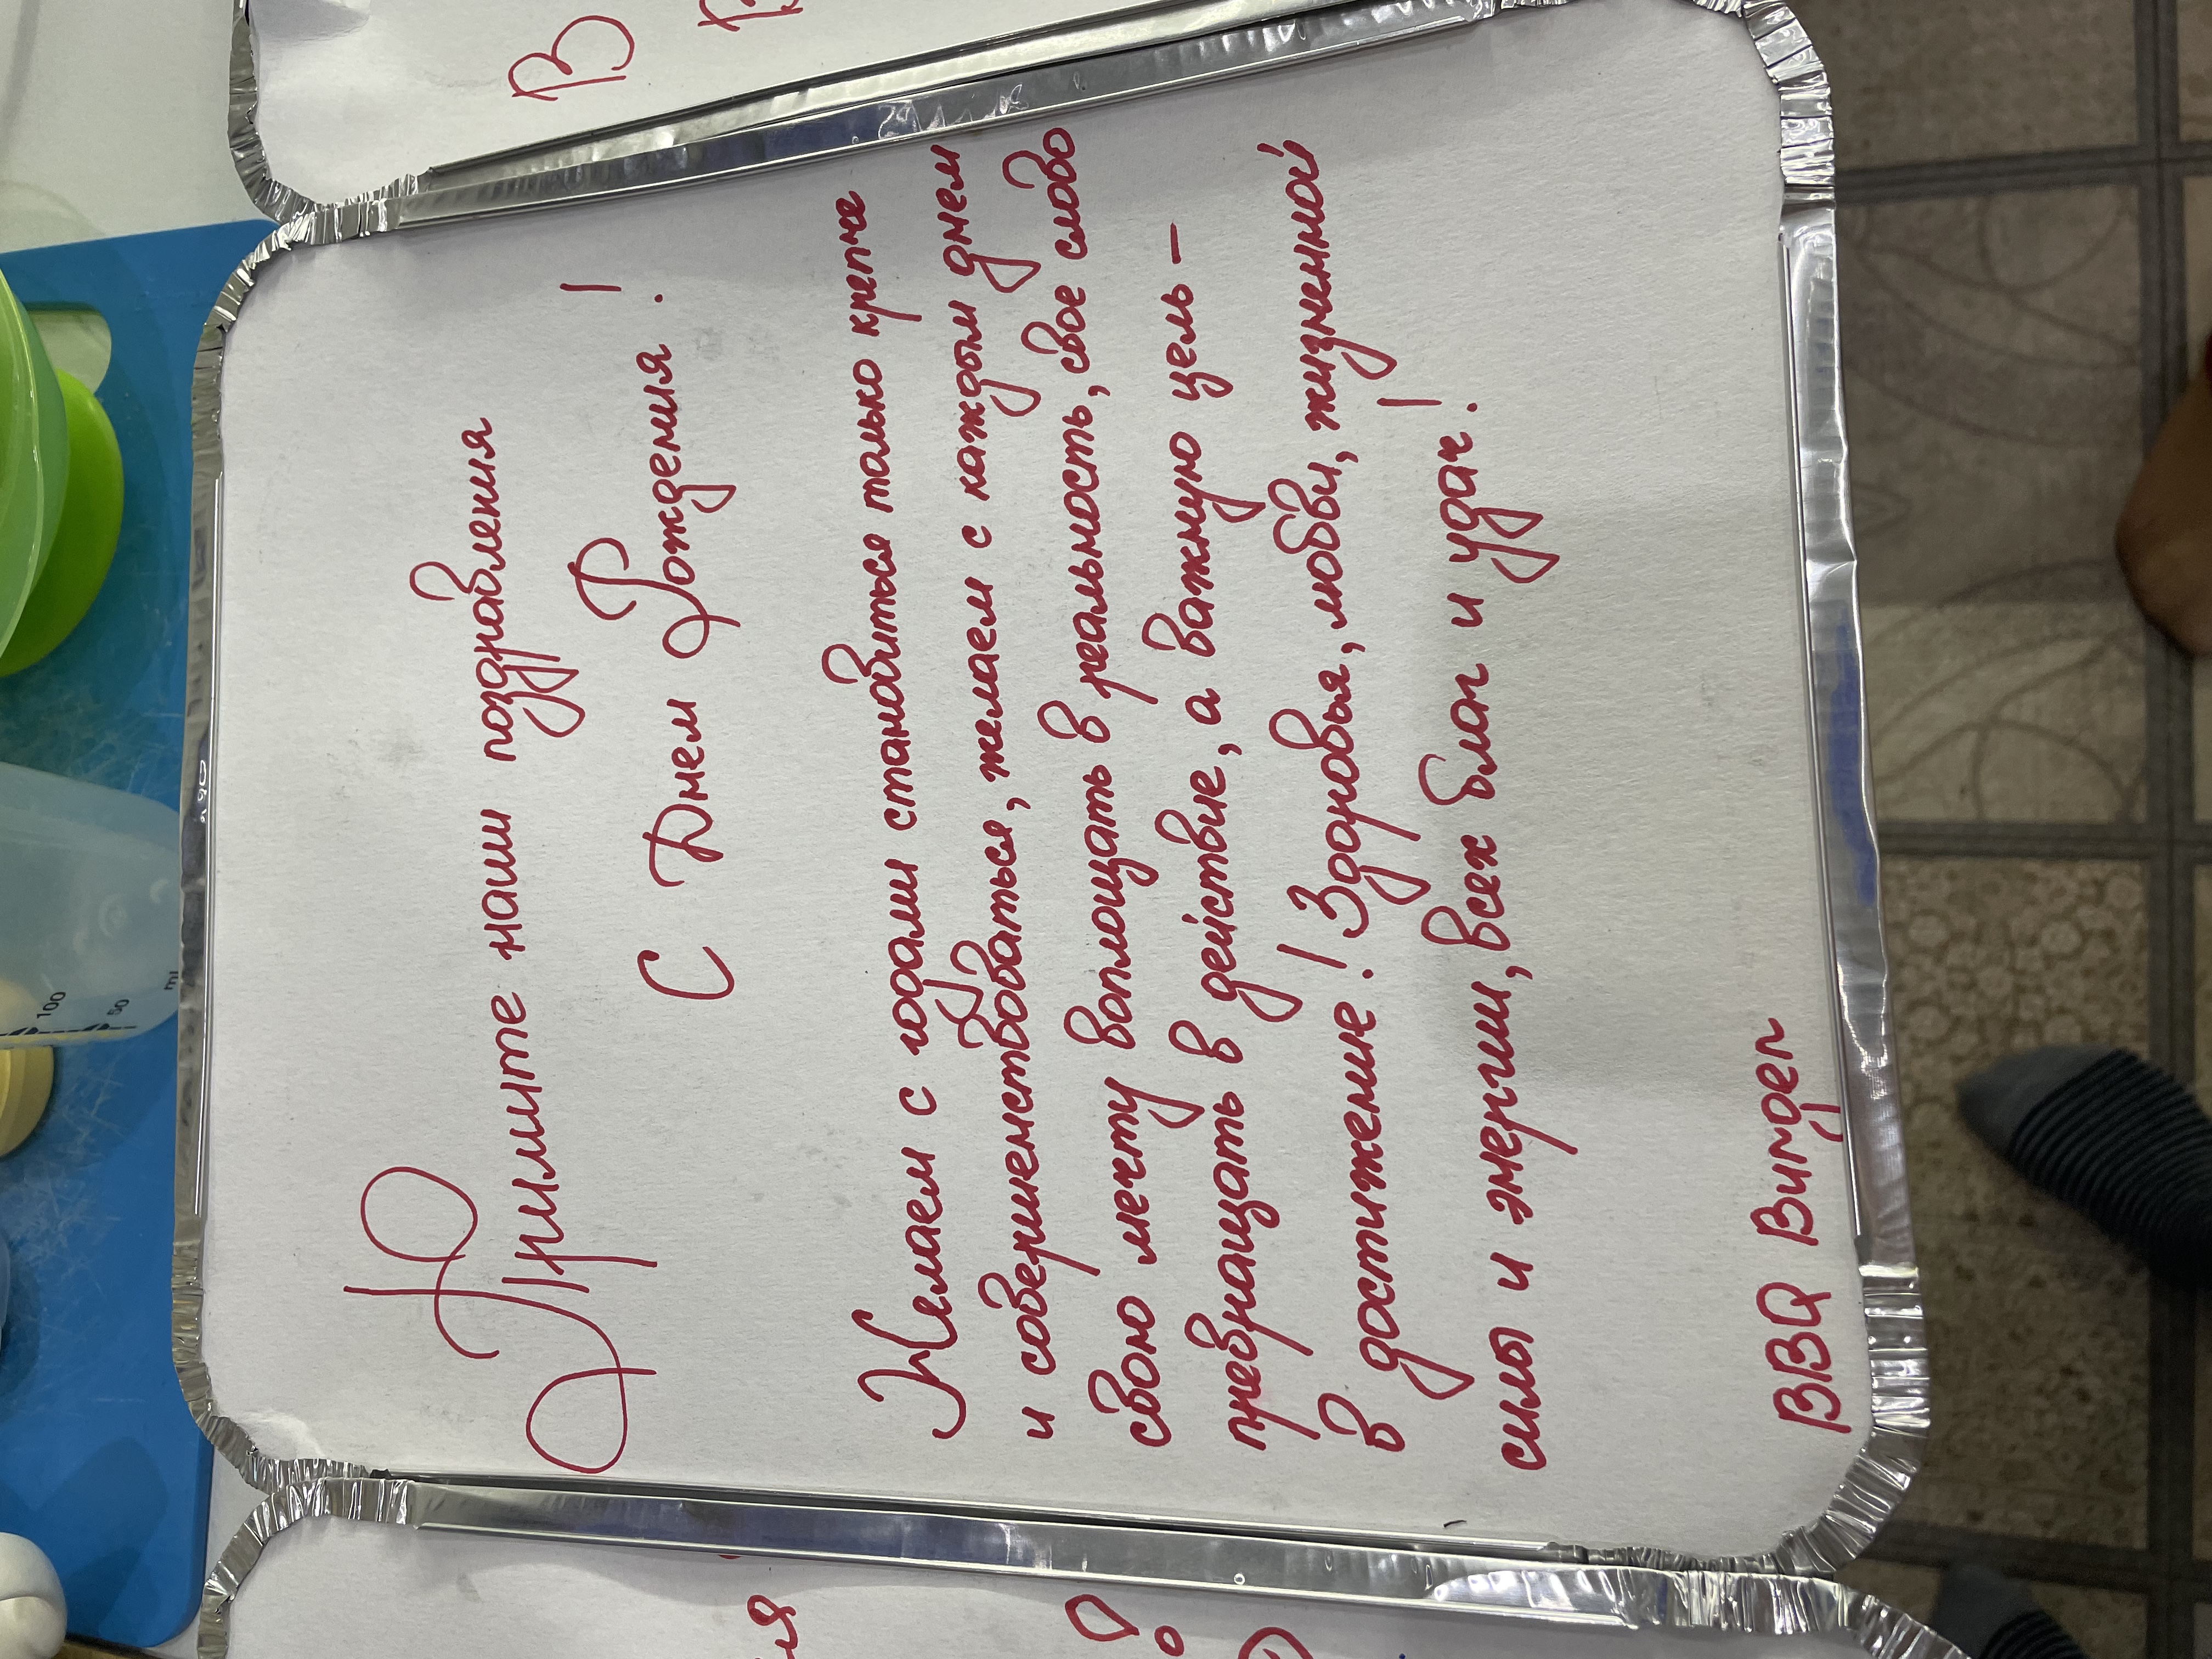 Примите наши поздравления
С Днем Рождения!
Желаем с годами становиться только крепче
и совершенствоваться, желаем с каждым днем
свою мечту воплощать в реальность, свое слово
превращать в действие, а важную цель –
в достижение! Здоровья, любви, жизненной
силы и энергии, всех благ и удач!
BBQ Виндер
100
50
ml
В